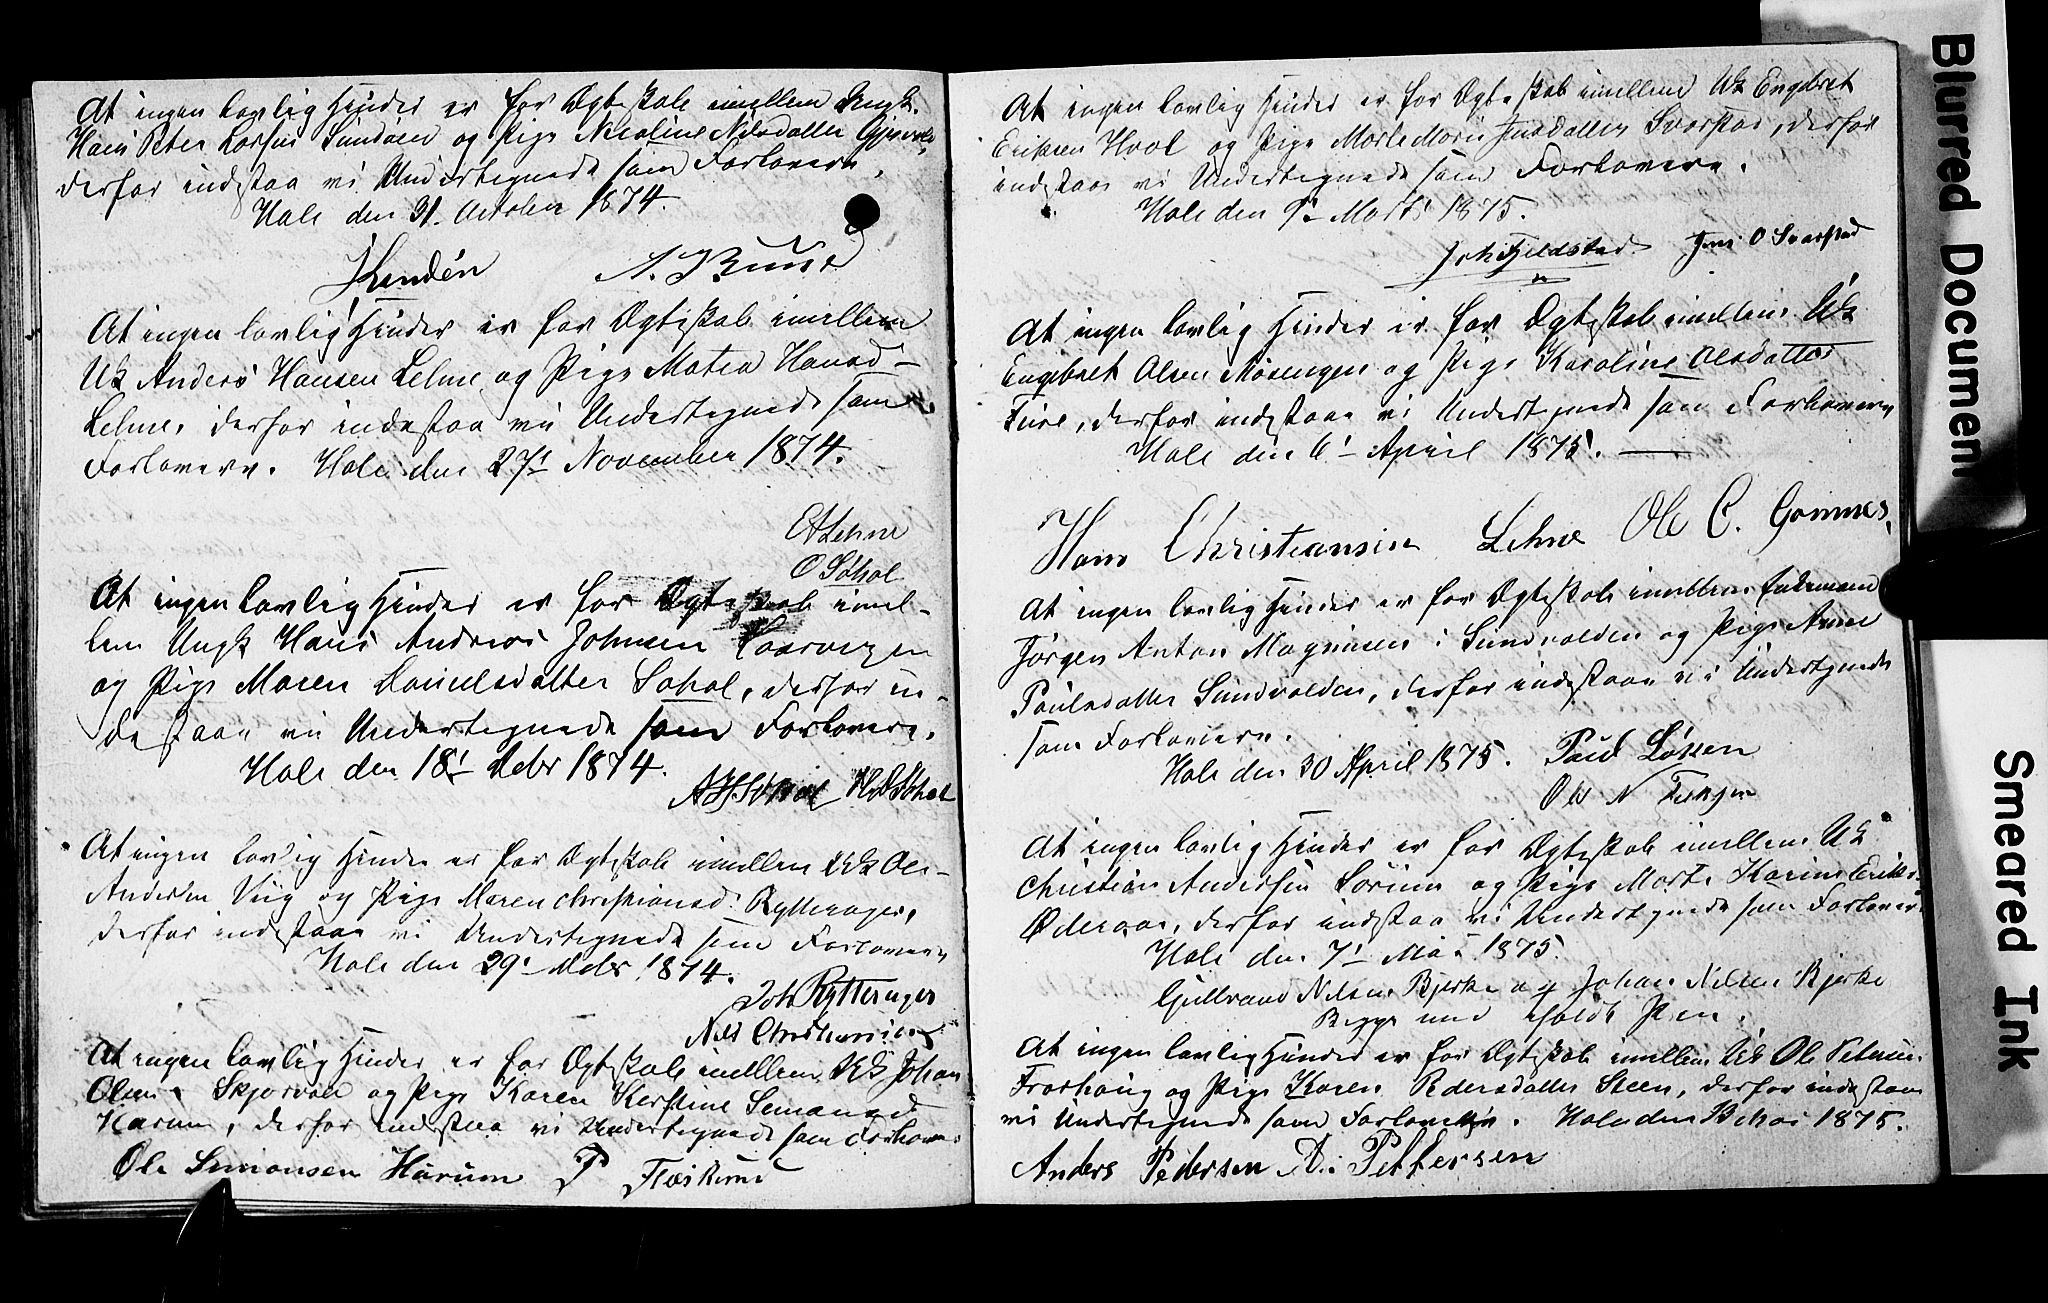 At ingen lovlig Hinder er for Ægteskab imellem Ungk.
Hans Peter Larsen Sundøen og Pige Nicoline Nilsdatter
derfor indestaa vi Undertegnede som Forlovere.
Hole den 31. October 1874.
A. Buse
At ingen lovlig Hinder er for Ægteskab imellem
Uk Anders Hansen Lehne og Pige Matea Hansd-
Lehne, derfor indestaa vi Undertegnede som
Forlovere. Hole den 27' November 1874.
Lehne
O Søhol
At ingen lovlig Hinder er for Ægteskab imel-
lem Ungk Hans Andreas Johnsen
og Pige Maren Danielsdatter Søhol, derfor in-
destaa vi Undertegnede som Forlovere.
Hole den 18' Debr 1874.
Søhol
At ingen lovlig Hinder er for Ægteskab imellem Uk Ole
Andersen Viig og Pige Maren Christiansd. Rytterager,
derfor indestaa vi Undertegnede som Forlovere
Hole den 29' Debr 1874.
Joh Rytterager
Nils Christiansen
At ingen lovlig Hinder er for Ægteskab imellem Uk Johan
Olsen Skjørvold og Pige Karen Kerstine Simonsd
Harum, derfor indestaa vi Undertegnede som Forlovere
Ole Simonsen Harum P Fleskerud
At ingen lovlig Hinder er for Ægteskab imellem Uk Engebret
Eriksen Hval og Pige Marte Marie Jensdatter Svarstad, derfor
indestaa vi Undertegnede som Forlovere.
Hole den 9' Marts 1875.
Fjeldstad Jens O Svarstad
At ingen lovlig Hinder er for Ægteskab imellem Uk
Engebret Olsen Moesengen og Pige Karoline Olsdatter
Fure, derfor indestaa vi Undertegnede som Forlovere
Hole den 6' April 1875.
Hans Christiansen Lehne Ole C. Gomnes
At ingen lovlig Hinder er for Ægteskab imellem Enkemand
Jørgen Anton Magnusen i Sundvolden og Pige Anne
Paulsdatter Sundvolden, derfor indestaa vi Undertegnede
som Forlovere.
Hole den 30 April 1875. Paul Løssen
Ole N
At ingen lovlig Hinder er for Ægteskab imellem Uk
Christian Andersen Lorum og Pige Marte Karine Eriksd.
Øderaa, derfor indestaa vi Undertegnede som Forlovere
Hole den 7' Mai 1875.
Gulbrand Nilsen Bjerke og Johan Nilsen Bjerke
Begge med iholdt Pen.
At ingen lovlig Hinder er for Ægteskab imellem Uk Ole
Froshaug og Pige Karen Pedersdatter Steen, derfor indestaa
vi Undertegnede som Forlovere. Hole den Mai 1875.
Anders Pedersen A. Pettersen
Blurred Document
Smeared Ink